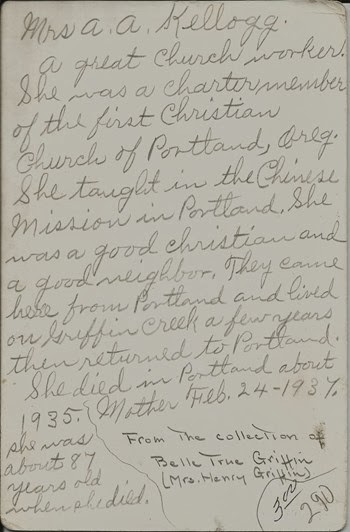 Mrs A. A. Kellogg.
A great Church worker.
She was a charter member
of the first Christian
Church of Portland, Oreg.
She taught in the Chinese
Mission in Portland. She
was a good christian and
a good neighbor. They came
here from Portland and lived
on Griffin Creek a few years
then returned to Portland.
She died in Portland about
1935.
she was
about 87
years old
when she died.
Mother Feb. 24-1937.
From the collection of
Belle True Griffin
(Mrs. Henry Griffin)
3.00
290